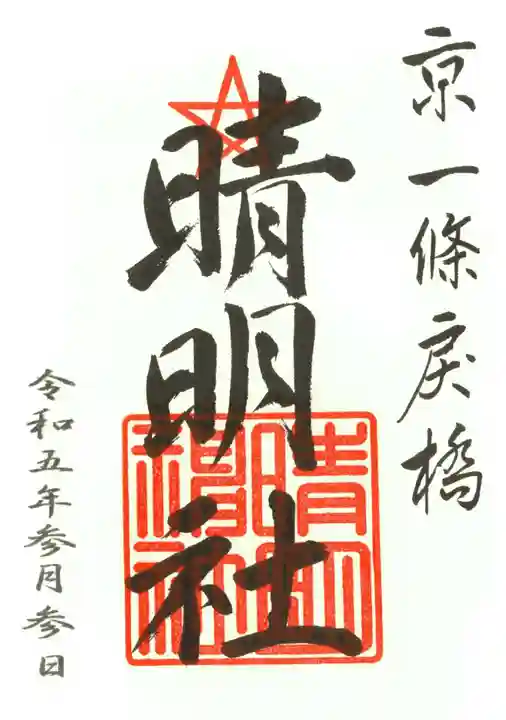 京一條戻橋
晴明社
晴明
福社
令和五年参月参日